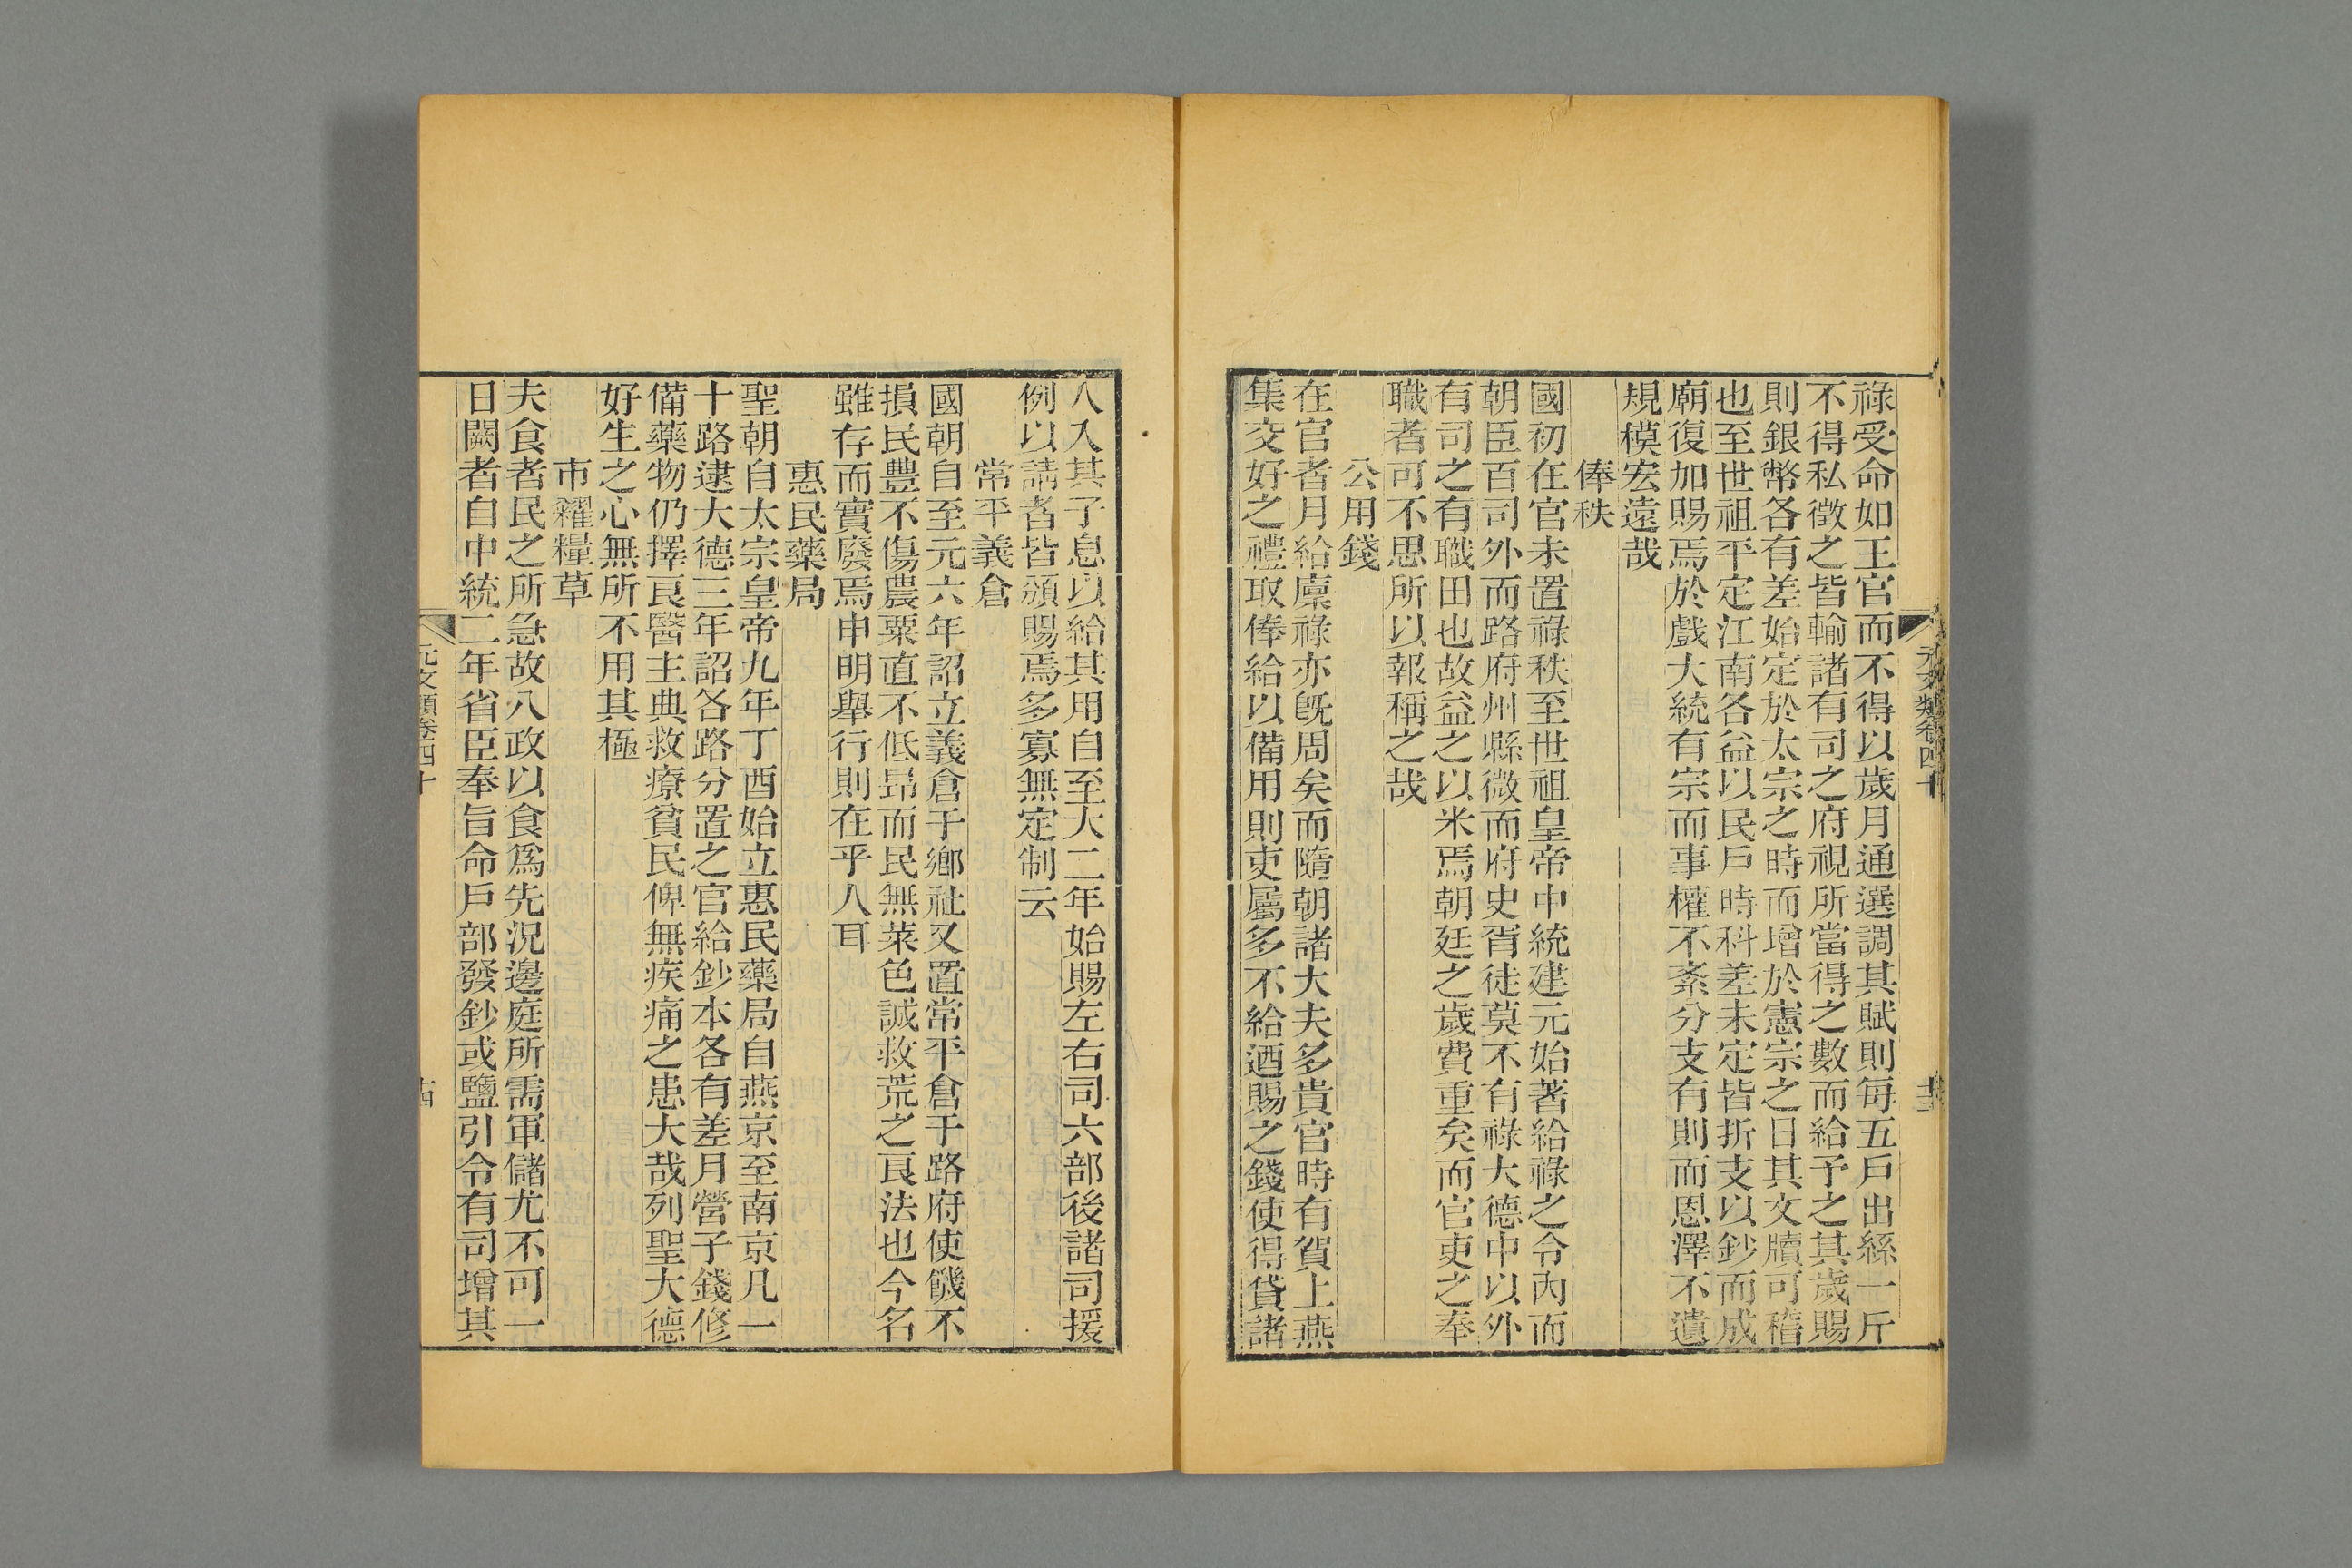 祿受命如王官而不得以歲月通選調其賦則每五戶出絲一斤
不得私徵之皆輸諸有司之府視所當得之數而給予之其歲賜
則銀幣各有差始定於太宗之時而增於憲宗之日其文牘可稽
也至世祖平定江南各益以民戶時科差未定皆折支以鈔而成
廟復加賜焉於戲大統有宗而事權不紊分支有則而恩澤不遺
規模宏遠哉
俸秩
國初在官未置祿秩至世祖皇帝中統建元始著給祿之令內而
朝臣百司外而路府州縣微而府史胥徒莫不有祿大德中以外
有司之有職田也故益之以米焉朝廷之歲費重矣而官吏之奉
職者可不思所以報稱之哉
公用錢
在官者月給廩祿亦既周矣而隨朝諸大夫多貴官時有賀上燕
集交好之禮取俸給以備用則吏屬多不給迺賜之錢使得貸諸
人入其子息以給其用自至大二年始賜左右司六部後諸司援
例以請者皆頒賜焉多寡無定制云
常平義倉
國朝自至元六年詔立義倉于鄉社又置常平倉于路府使饑不
損民豐不傷農粟直不低昻而民無菜色誠救荒之良法也今名
雖存而實廢焉申明舉行則在乎人耳
惠民藥局
聖朝自太宗皇帝九年丁酉始立惠民藥局自燕京至南京凡一
十路逮大德三年詔各路分置之官給鈔本各有差月營子錢修
備藥物仍擇良醫主典救療貧民俾無疾痛之患大哉列聖大德
好生之心無所不用其極
市糴糧草
夫食者民之所急故八政以食爲先況邊庭所需軍儲尤不可一
日闕者自中統二年省臣奉旨命戶部發鈔或鹽引令有司增其
元文類卷四十
十四